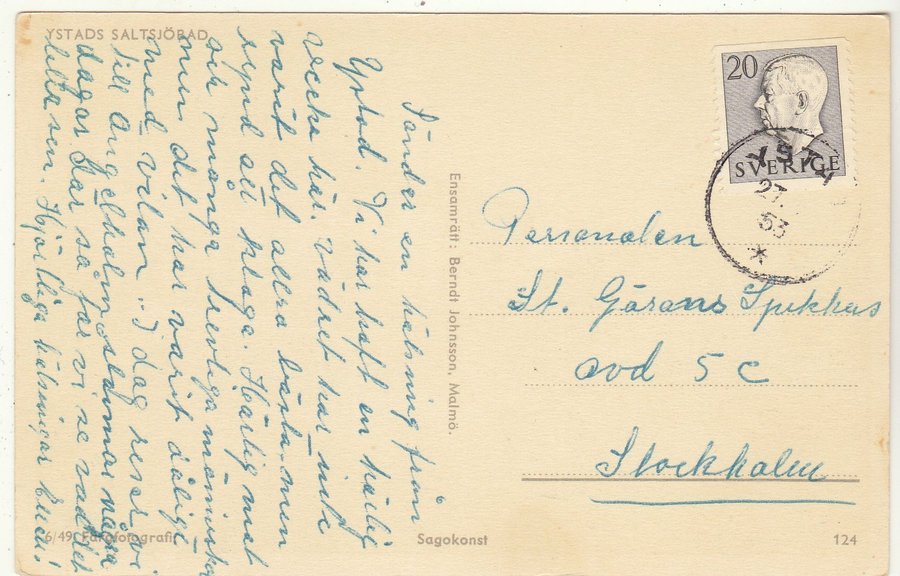 YSTADS SALTSJÖBAD
Sänder en hälsning från
Ystad. Vi har haft en härlig
vecka här. Vädret har inte
varit det allra bästa men
synd att klaga. Härlig mat
och många trevliga människor
men det har varit dåligt
med vilan. I dag reser vi
till Ängelholm stannar några
dagar där så får vi se vad det
blir sen. Hjärtliga hälsningar
Ensamrätt: Berndt Johnsson, Malmö.
20
SVERIGE
YSTAD
27.
53
Personalen
St. Görans Sjukhus
avd 5 C
Stockholm
6/49 Färgfotografi
Sagokonst
124